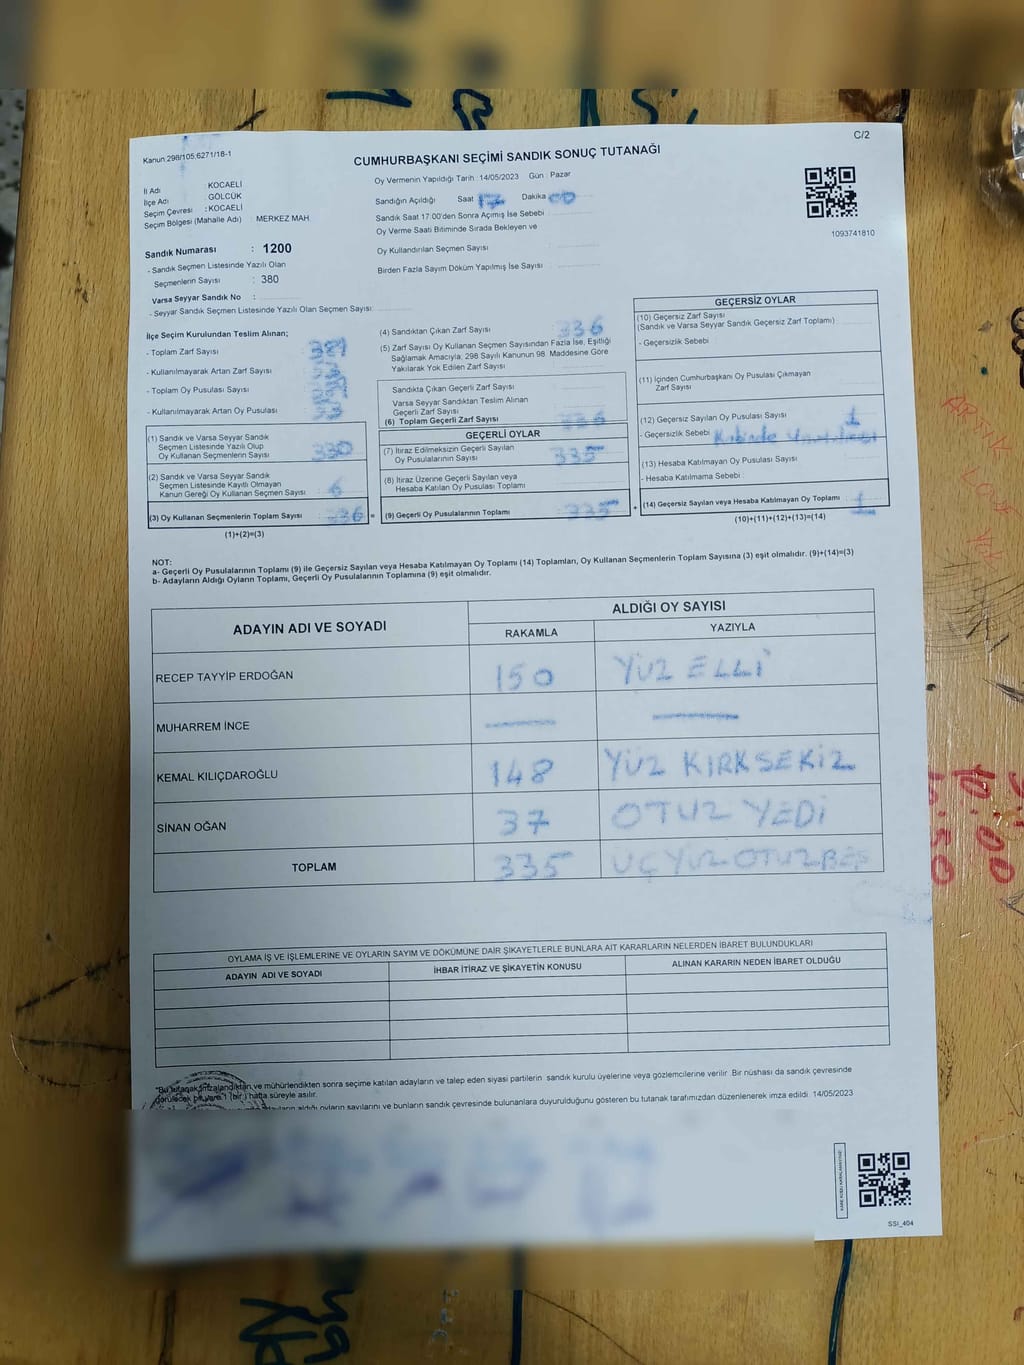 C/2
Kanun 298/105;6271/18-1
CUMHURBAŞKANI SEÇİMİ SANDIK SONUÇ TUTANAĞI
İl Adı : KOCAELİ
İlçe Adı : GÖLCÜK
Seçim Çevresi : KOCAELİ
Seçim Bölgesi (Mahalle Adı) : MERKEZ MAH
Sandık Numarası : 1200
- Sandık Seçmen Listesinde Yazılı Olan
Seçmenlerin Sayısı : 380
Varsa Seyyar Sandık No :
- Seyyar Sandık Seçmen Listesinde Yazılı Olan Seçmen Sayısı:
Oy Vermenin Yapıldığı Tarih : 14/05/2023 Gün : Pazar
Sandığın Açıldığı Saat 17 Dakika 00
Sandık Saat 17:00'den Sonra Açmış İse Sebebi
Oy Verme Saati Bitiminde Sırada Bekleyen ve
Oy Kullandırılan Seçmen Sayısı :
Birden Fazla Sayım Döküm Yapılmış İse Sayısı :
1093741810
İlçe Seçim Kurulundan Teslim Alınan;
- Toplam Zarf Sayısı
- Kullanılmayarak Artan Zarf Sayısı
- Toplam Oy Pusulası Sayısı
- Kullanılmayarak Artan Oy Pusulası
(1) Sandık ve Varsa Seyyar Sandık
Seçmen Listesinde Yazılı Olup
Oy Kullanan Seçmenlerin Sayısı 330
(2) Sandık ve Varsa Seyyar Sandık
Seçmen Listesinde Kayıtlı Olmayan
Kanun Gereği Oy Kullanan Seçmen Sayısı 6
(3) Oy Kullanan Seçmenlerin Toplam Sayısı 336 =
(1)+(2)=(3)
(4) Sandıktan Çıkan Zarf Sayısı 336
(5) Zarf Sayısı Oy Kullanan Seçmen Sayısından Fazla İse, Eşitliği
Sağlamak Amacıyla; 298 Sayılı Kanunun 98. Maddesine Göre
Yakılarak Yok Edilen Zarf Sayısı
Sandıkta Çıkan Geçerli Zarf Sayısı :
Varsa Seyyar Sandıktan Teslim Alınan
Geçerli Zarf Sayısı
(6) Toplam Geçerli Zarf Sayısı : 336
GEÇERLİ OYLAR
(7) İtiraz Edilmeksizin Geçerli Sayılan
Oy Pusulalarının Sayısı 335
(8) İtiraz Üzerine Geçerli Sayılan veya
Hesaba Katılan Oy Pusulası Toplamı
(9) Geçerli Oy Pusulalarının Toplamı 335 +
GEÇERSİZ OYLAR
(10) Geçersiz Zarf Sayısı
(Sandık ve Varsa Seyyar Sandık Geçersiz Zarf Toplamı)
- Geçersizlik Sebebi
(11) İçinden Cumhurbaşkanı Oy Pusulası Çıkmayan
Zarf Sayısı
(12) Geçersiz Sayılan Oy Pusulası Sayısı 1
- Geçersizlik Sebebi
(13) Hesaba Katılmayan Oy Pusulası Sayısı
- Hesaba Katılmama Sebebi :
(14) Geçersiz Sayılan veya Hesaba Katılmayan Oy Toplamı 1
(10)+(11)+(12)+(13)=(14)
NOT:
a- Geçerli Oy Pusulalarının Toplamı (9) ile Geçersiz Sayılan veya Hesaba Katılmayan Oy Toplamı (14) Toplamları, Oy Kullanan Seçmenlerin Toplam Sayısına (3) eşit olmalıdır. (9)+(14)=(3)
b- Adayların Aldığı Oyların Toplamı, Geçerli Oy Pusulalarının Toplamına (9) eşit olmalıdır.
ADAYIN ADI VE SOYADI ALDIĞI OY SAYISI
RAKAMLA YAZIYLA
RECEP TAYYİP ERDOĞAN 150 YÜZ ELLİ
MUHARREM İNCE
KEMAL KILIÇDAROĞLU 148 YÜZ KIRKSEKİZ
SİNAN OĞAN 37 OTUZ YEDİ
TOPLAM 335 ÜÇ YÜZ OTUZBEŞ
OYLAMA İŞ VE İŞLEMLERİNE VE OYLARIN SAYIM VE DÖKÜMÜNE DAİR ŞİKAYETLERLE BUNLARA AİT KARARLARIN NELERDEN İBARET BULUNDUKLARI
ADAYIN ADI VE SOYADI İHBAR İTİRAZ VE ŞİKAYETİN KONUSU ALINAN KARARIN NEDEN İBARET OLDUĞU
*Bu tutanak imzalandıktan ve mühürlendikten sonra seçime katılan adayların ve talep eden siyasi partilerin sandık kurulu üyelerine veya gözlemcilerine verilir. Bir nüshası da sandık çevresinde
görülecek bir yere 1 (bir) hafta süreyle asılır.
aldığı oyların sayılarını ve bunların sandık çevresinde bulunanlara duyurulduğunu gösteren bu tutanak tarafımızdan düzenlenerek imza edildi. 14/05/2023
SSI_404
ARTIK
YOK